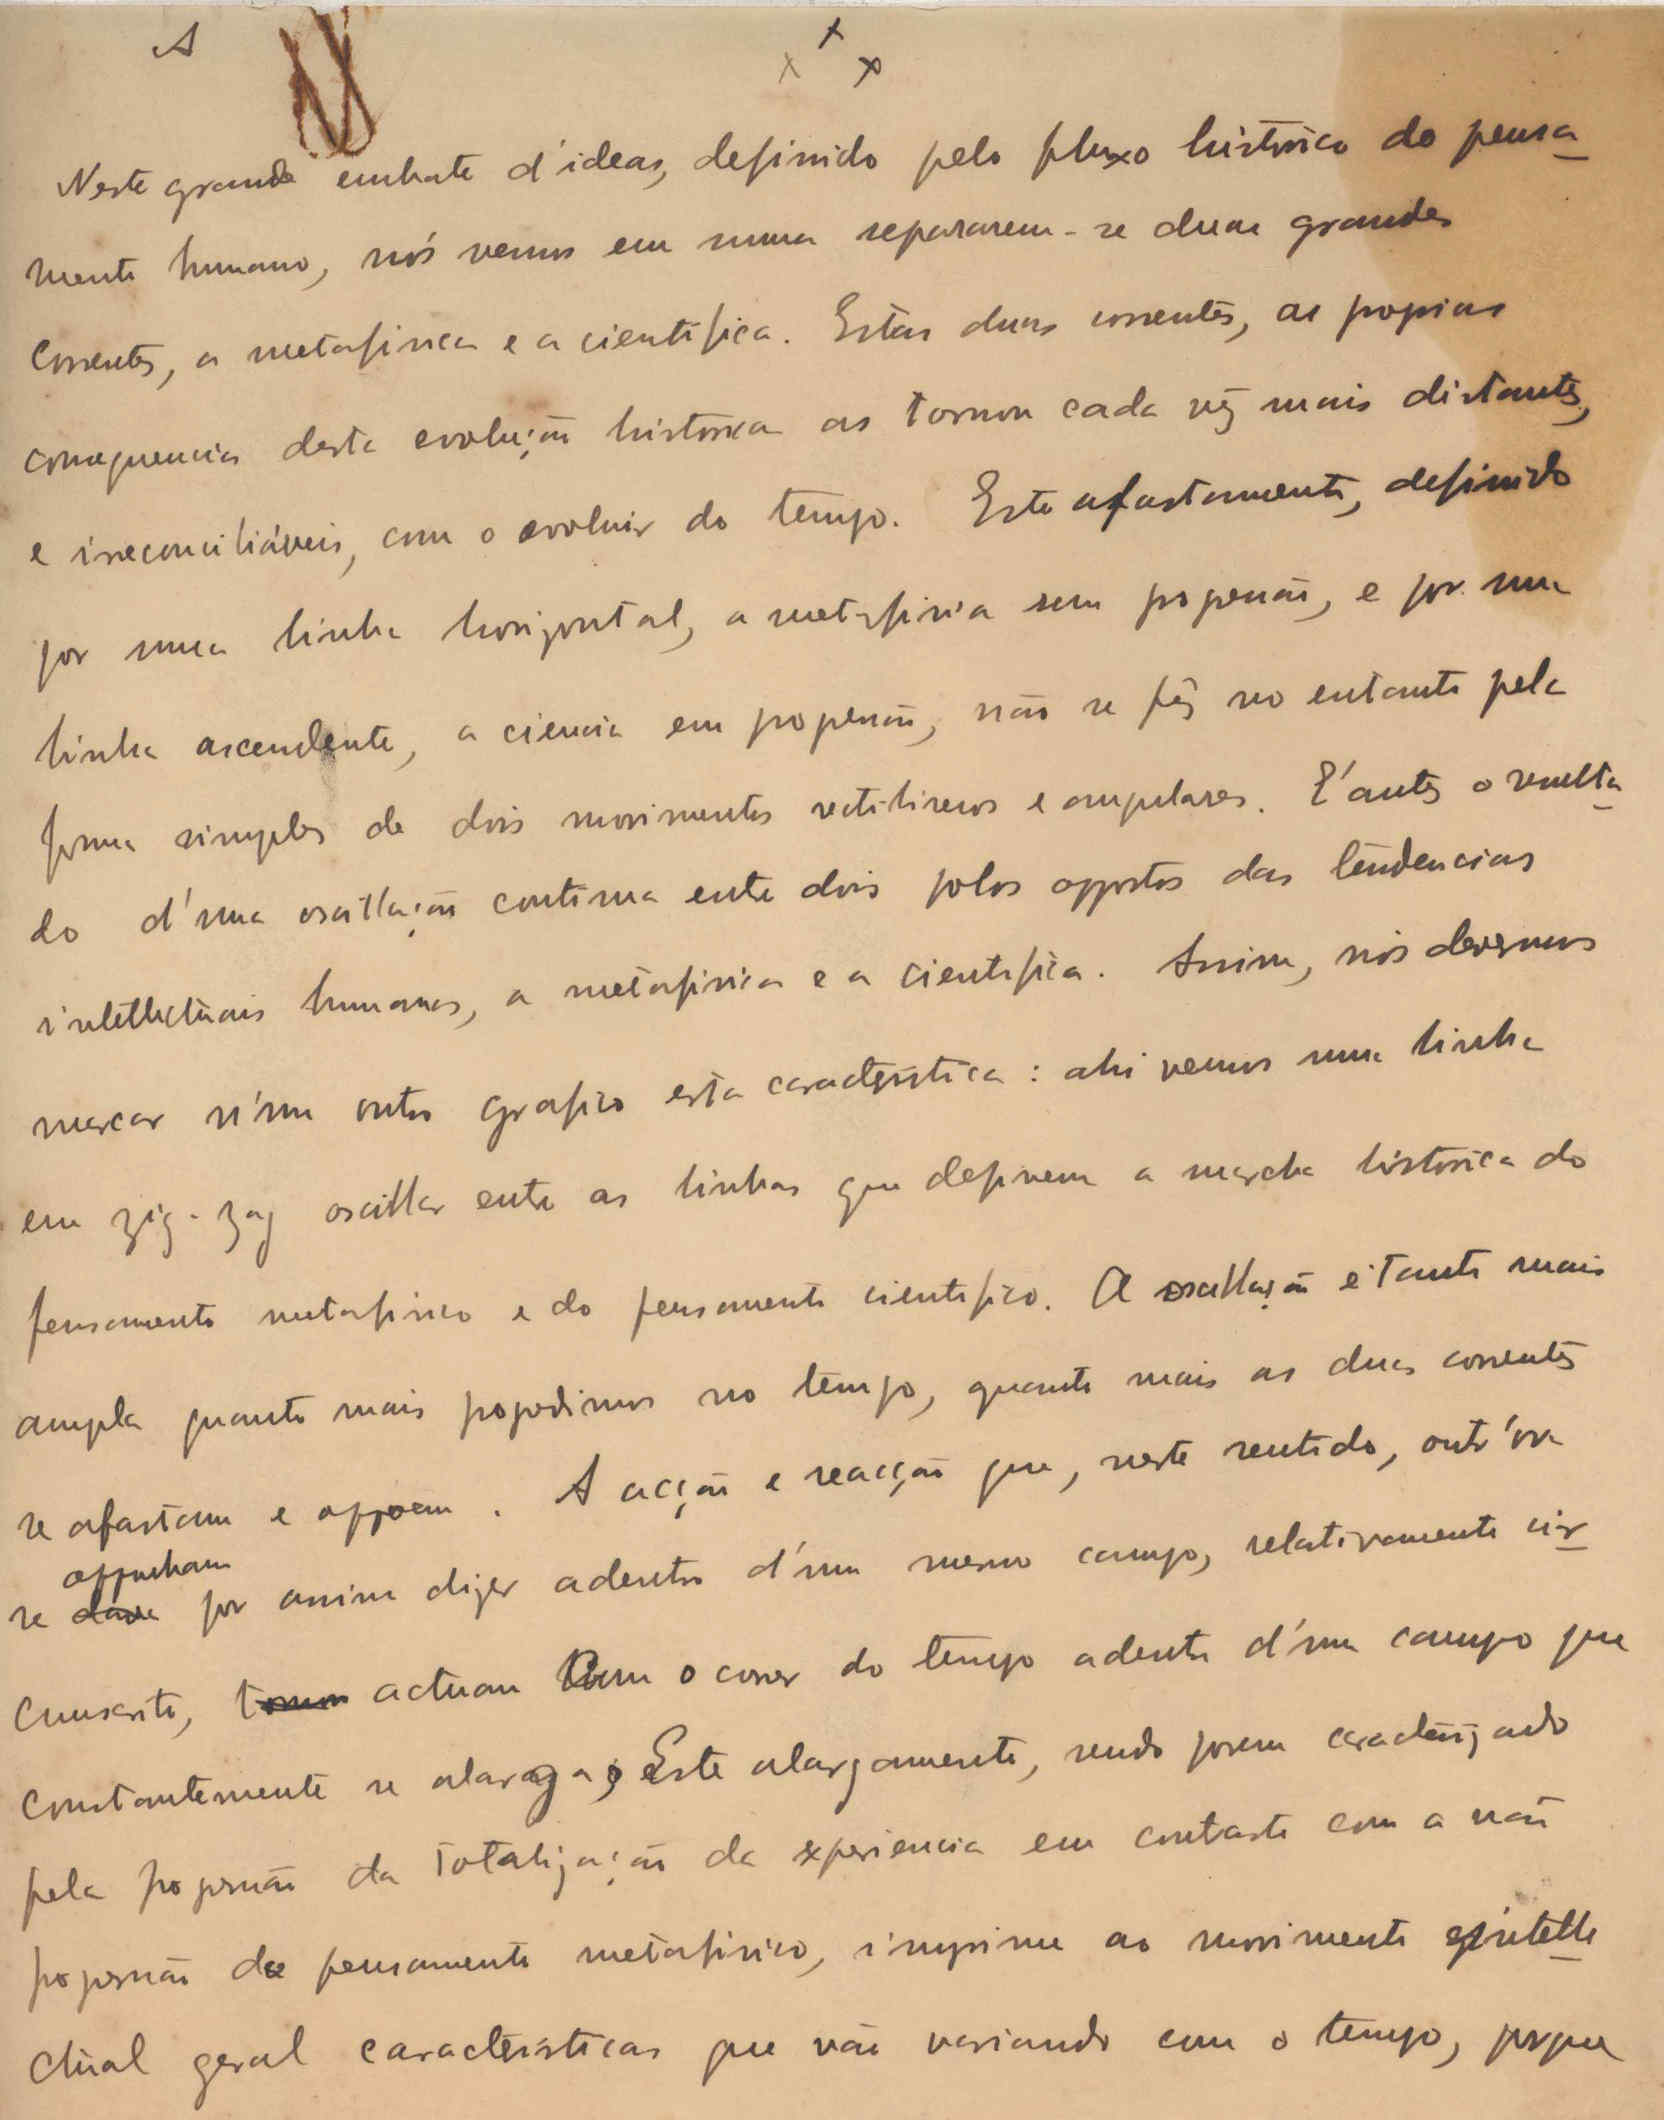 A
x x x
Neste grande embate d'ideas, definido pelo fluxo historico do pensa-
mento humano, nós vemos em summa separarem-se duas grandes
correntes, a metafisica e a cientifica. Estas duas correntes, as proprias
consequencias desta evolução historica as tornou cada vêz mais distantes,
e irreconciliáveis, com o evoluir do tempo. Este afastamento, definido
por uma linha horizontal, a metafisica sem progressão, e por uma
linha ascendente, a ciencia em progressão, não se fêz no entanto pela
forma simples de dois movimentos rectilineos e angulares. E' antes o resulta-
do d'uma oscillação continua entre dois polos oppostos das tendencias
intellectuais humanas, a metafisica e a cientifica. Assim, nós devemos
marcar n'um outro grafico esta caracteristica: ahi vemos uma linha
em zig-zag oscillar entre as linhas que definem a marcha historica do
pensamento metafisico e do pensamento cientifico. A oscillação é tanto mais
ampla quanto mais progredimos no tempo, quanto mais as duas correntes
se afastam e oppoem. A acção e reacção que, neste sentido, outr'ora
oppunham
se dava por assim dizer adentro d'um mesmo campo, relativamente cir-
cunscrito, actuam com o correr do tempo adentro d'um campo que
constantemente se alarga; Este alargamento, sendo porem caracterizado
pela progressão da totalização da experiencia em contraste com a não
progressão do pensamento metafisico, imprime ao movimento intelle-
ctual geral caracteristicas que vão variando com o tempo, porque